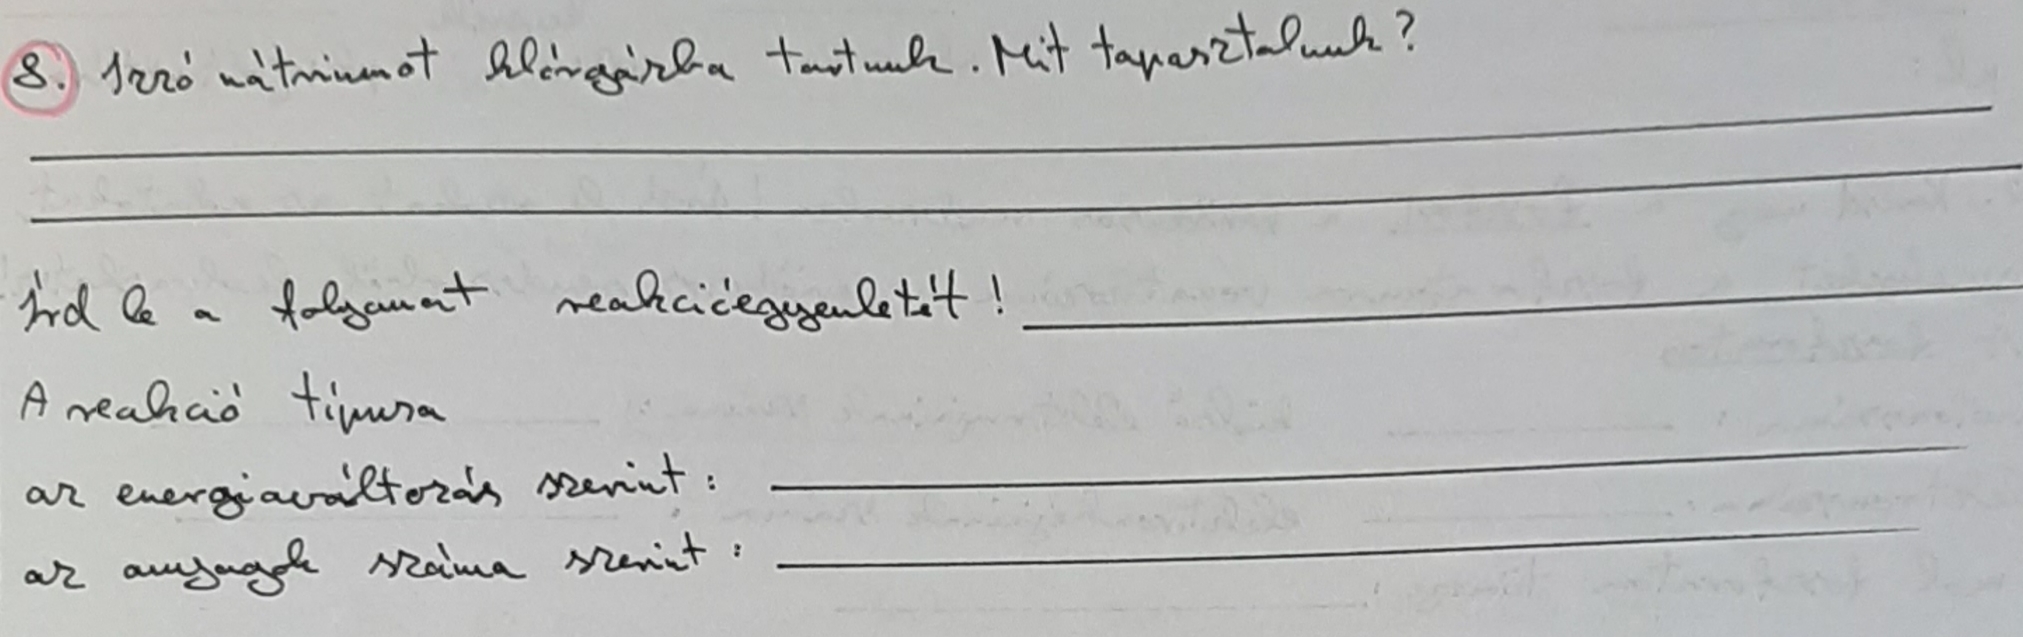 8. Izzó nátriumot klórgázba tartunk. Mit tapasztalunk?
Írd le a folyamat reakcióegyenletét!
A reakció típusa
az energiaváltozás szerint:
az anyagok száma szerint: